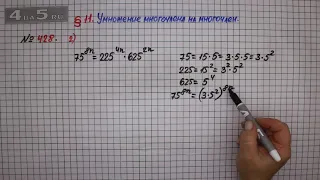 4 на 5.ru
§ 11. Умножение многочлена на многочлен.
№ 428. 2)
75⁸ⁿ = 225⁴ⁿ · 625²ⁿ
75 = 15 · 5 = 3 · 5 · 5 = 3 · 5²
225 = 15² = 3² · 5²
625 = 5⁴
75⁸ⁿ = (3 · 5²)⁸ⁿ